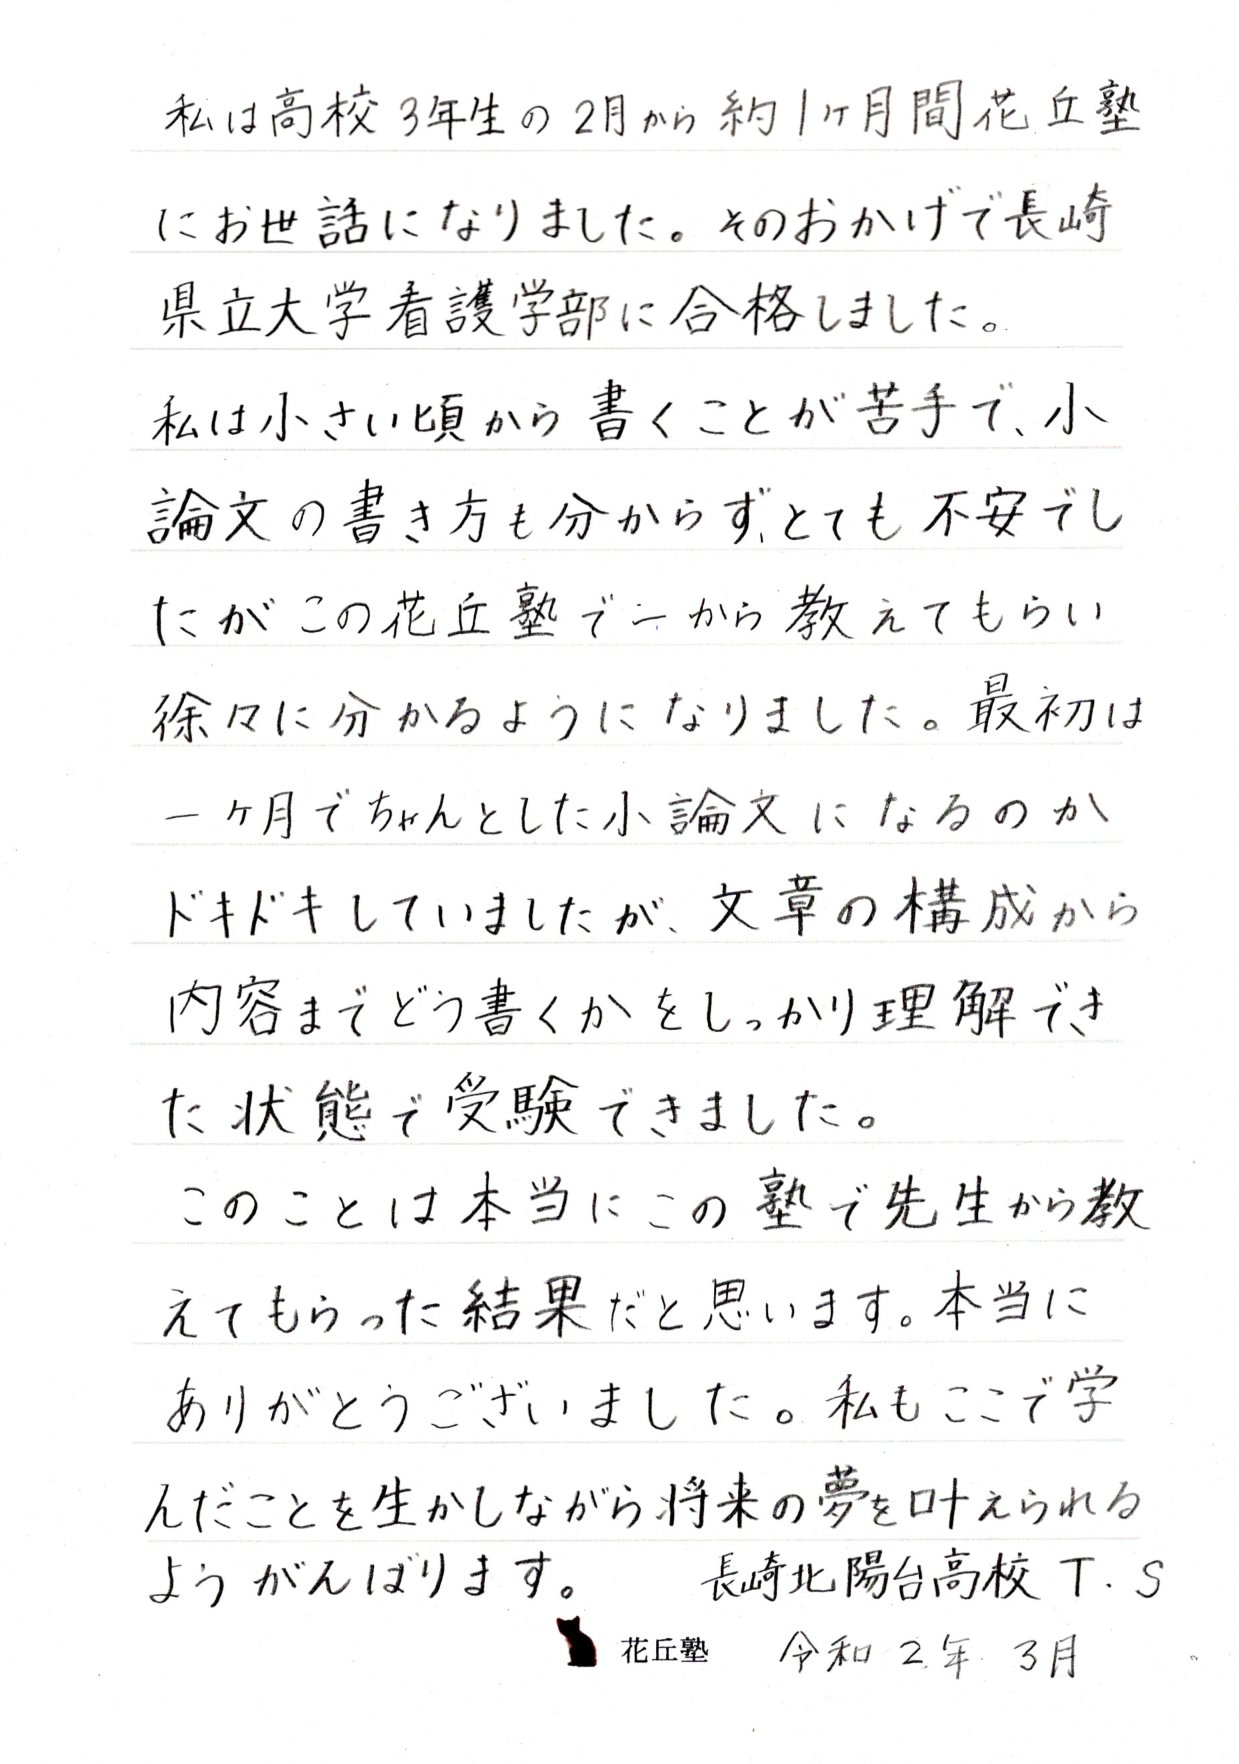 私は高校3年生の2月から約1ヶ月間花丘塾
にお世話になりました。そのおかげで長崎
県立大学看護学部に合格しました。
私は小さい頃から書くことが苦手で、小
論文の書き方も分からず、とても不安でし
たがこの花丘塾で一から教えてもらい
徐々に分かるようになりました。最初は
一ヶ月でちゃんとした小論文になるのか
ドキドキしていましたが、文章の構成から
内容までどう書くかをしっかり理解でき
た状態で受験できました。
このことは本当にこの塾で先生から教
えてもらった結果だと思います。本当に
ありがとうございました。私もここで学
んだことを生かしながら将来の夢を叶えられる
ようがんばります。 長崎北陽台高校 T.S
花丘塾 令和2年3月